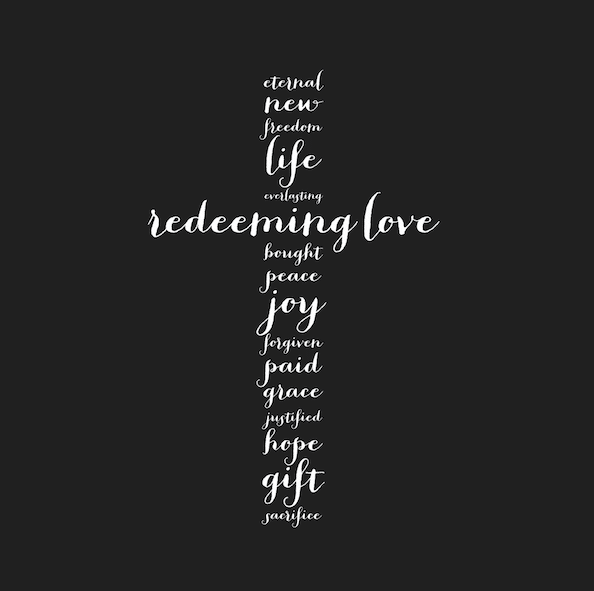 eternal
new
freedom
life
everlasting
redeeming love
bought
peace
joy
forgiven
paid
grace
justified
hope
gift
sacrifice